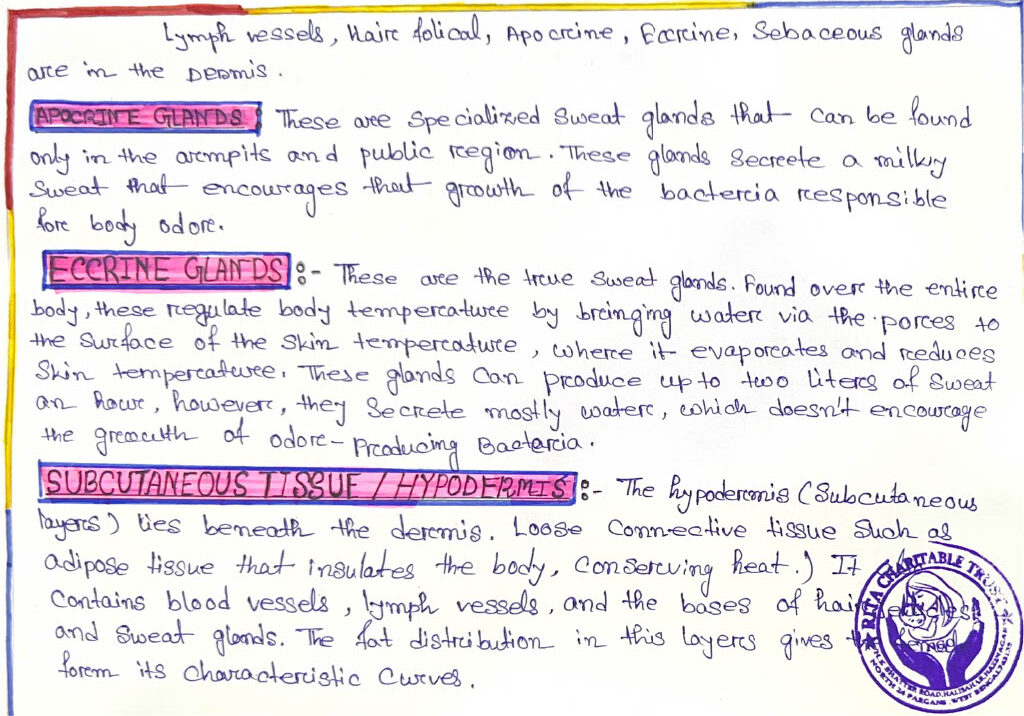 Lymph vessels, Hair folical, Apocrine, Eccrine, Sebaceous glands
are in the Dermis.
APOCRINE GLANDS : These are specialized sweat glands that can be found
only in the armpits and public region. These glands secrete a milky
sweat that encourages that growth of the bacteria responsible
for body odor.
ECCRINE GLANDS :- These are the true sweat glands. Found over the entire
body, these regulate body temperature by bringing water via the pores to
the surface of the skin temperature, where it evaporates and reduces
skin temperature. These glands can produce up to two liters of sweat
an hour, however, they secrete mostly water, which doesn't encourage
the growth of odor-Producing Bacteria.
SUBCUTANEOUS TISSUE / HYPODERMIS :- The hypodermis (Subcutaneous
layers) lies beneath the dermis. Loose connective tissue such as
adipose tissue that insulates the body, conserving heat.) It
contains blood vessels, lymph vessels, and the bases of hair
and sweat glands. The fat distribution in this layers gives the female
form its characteristic curves.
RITA CHARITABLE TRUST
ROAD, HALISAHAR
NORTH 24 PARGANS, WEST BENGAL